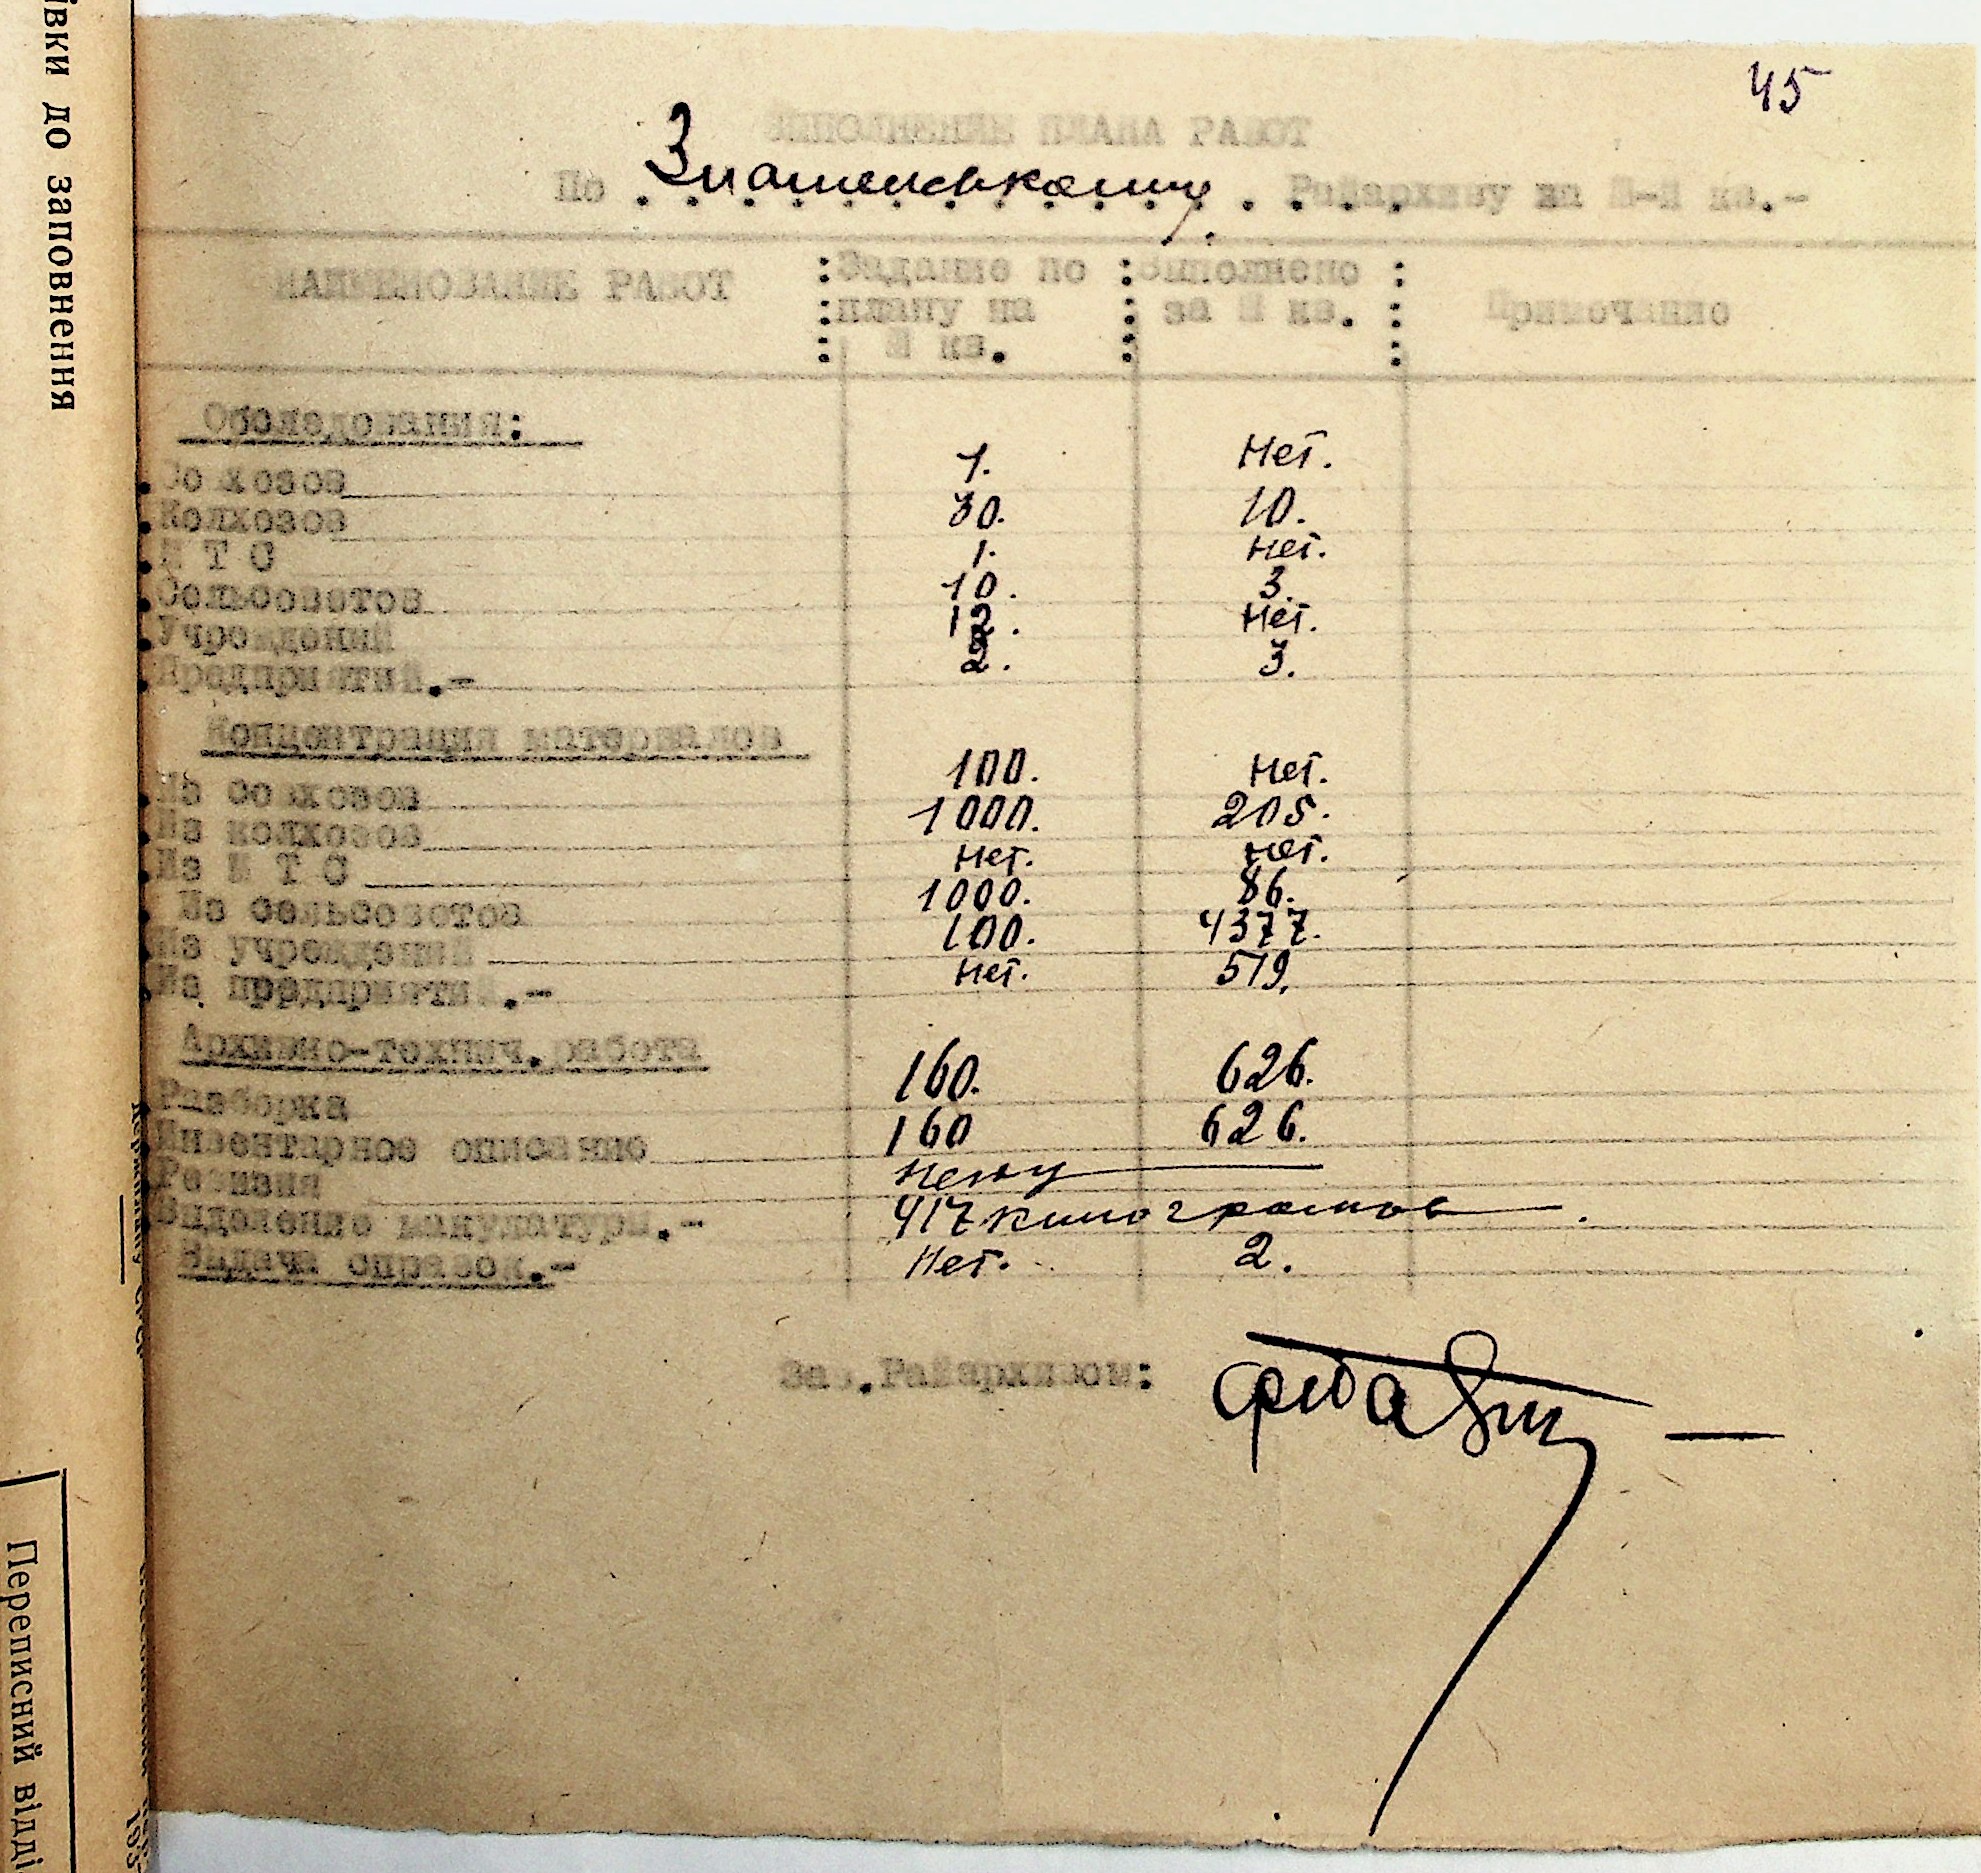 45
ВЫПОЛНЕНИЕ ПЛАНА РАБОТ
По Знаменському Райархиву за кв.-
НАИМЕНОВАНИЕ РАБОТ Задание по плану на кв. Выполнено за кв. Примечание
Обследования:
Совхозов 1. Нет.
Колхозов 30. 10.
М Т С 1. Нет.
Сельсоветов 10. 3.
Учреждений 12. Нет.
Предприятий.- 2. 3.
Концентрация материалов
Из совхозов 100. Нет.
Из колхозов 1000. 205.
Из М Т С Нет. Нет.
Из сельсоветов 1000. 86.
Из учреждений 100. 4377.
Из предприятий.- Нет. 519.
Архивно-технич.работа
Разборка 160. 626.
Инвентарное описание 160 626.
Ревизия
Выделение макулатуры.- 417 килограмов.
Выдача справок.- Нет. 2.
Зав.Райархивом:
івки до заповнення
Переписний відді